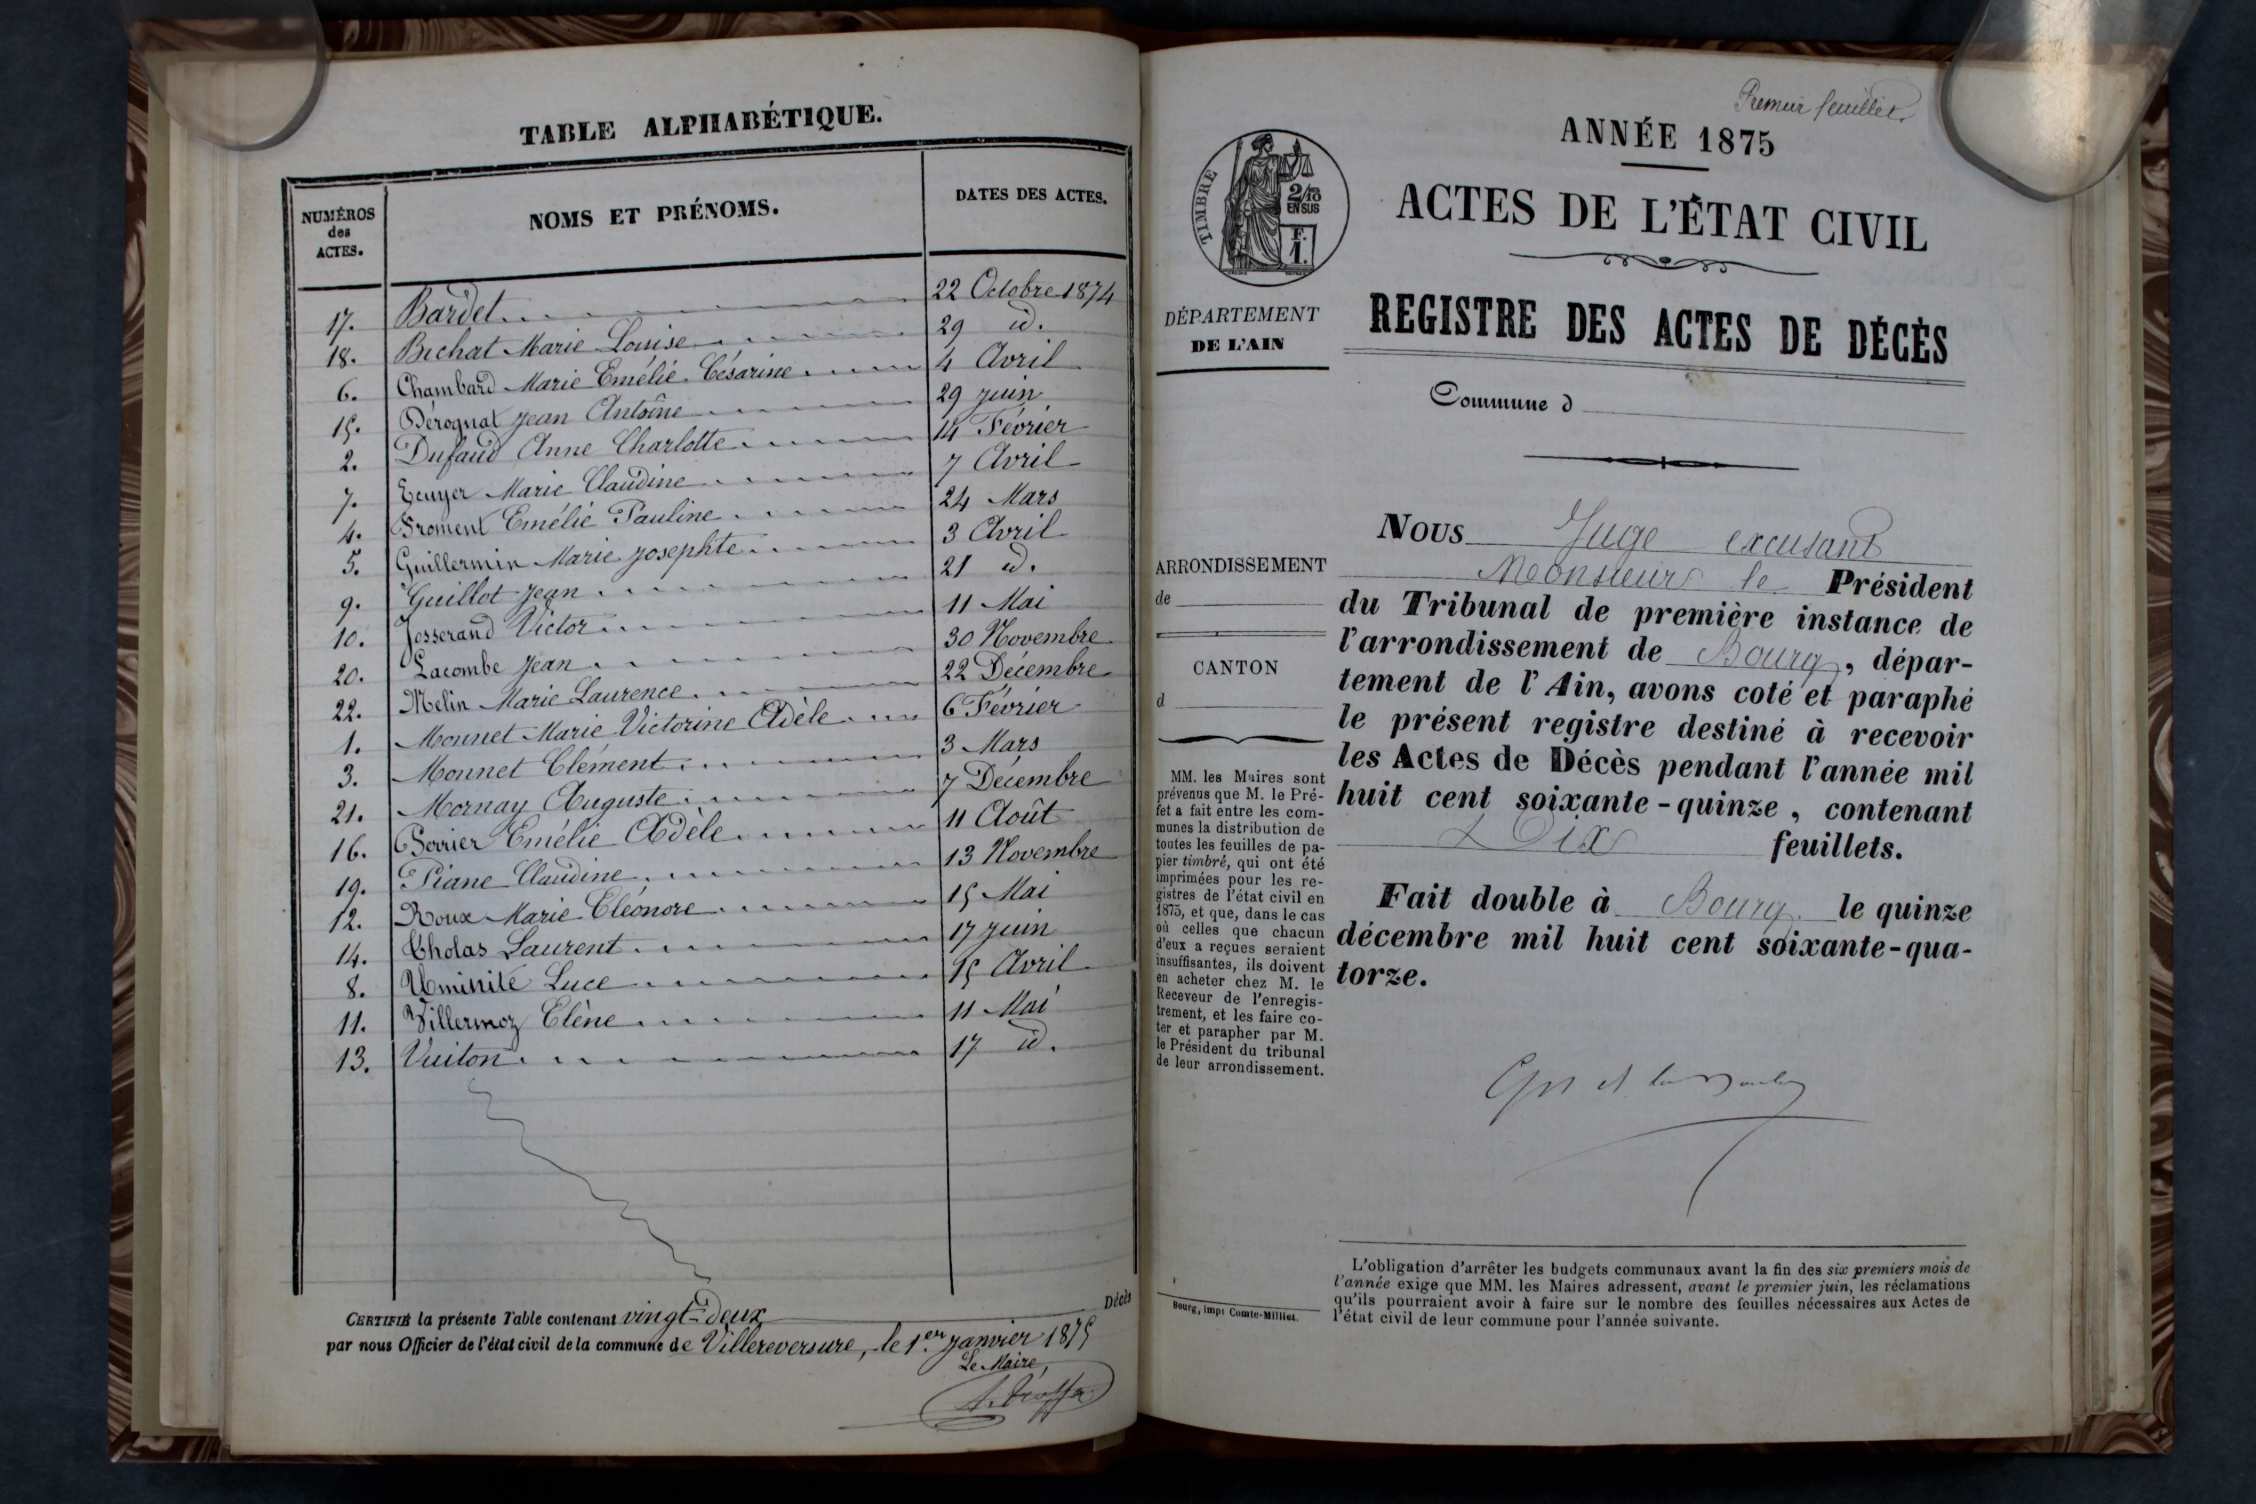 TABLE ALPHABÉTIQUE.
NUMÉROS des ACTES. NOMS ET PRÉNOMS. DATES DES ACTES.
17. Bardet 22 Octobre 1874
18. Bichat Marie Louise 29 id.
6. Chambard Marie Emélie Césarine 4 Avril
15. Dérognat Jean Antoine 29 juin
2. Dufaud Anne Charlotte 14 Février
7. Ecuyer Marie Claudine 7 Avril
4. Froment Emélie Pauline 24 Mars
5. Guillermin Marie Josephte 3 Avril
9. Guillot Jean 21 id.
10. Josserand Victor 11 Mai
20. Lacombe Jean 30 Novembre
22. Melin Marie Laurence 22 Décembre
1. Monnet Marie Victorine Adèle 6 Février
3. Monnet Clément 3 Mars
21. Mornay Auguste 7 Décembre
16. Perrier Emélie Adèle 11 Août
19. Piane Claudine 13 Novembre
12. Roux Marie Eléonore 15 Mai
14. Tholas Laurent 17 juin
8. Uminité Luce 15 Avril
11. Villermoz Elène 11 Mai
13. Vuiton 17 id.
CERTIFIÉ la présente Table contenant vingt-deux Décès
par nous Officier de l'état civil de la commune de Villereversure, le 1er janvier 1875
Le Maire,
Premier feuillet
ANNÉE 1875
TIMBRE
2/10 EN SUS
F. 1.
ACTES DE L'ÉTAT CIVIL
DÉPARTEMENT
DE L'AIN
REGISTRE DES ACTES DE DÉCÈS
Commune d
ARRONDISSEMENT
de
CANTON
d
MM. les Maires sont
prévenus que M. le Pré-
fet a fait entre les com-
munes la distribution de
toutes les feuilles de pa-
pier timbré, qui ont été
imprimées pour les re-
gistres de l'état civil en
1875, et que, dans le cas
où celles que chacun
d'eux a reçues seraient
insuffisantes, ils doivent
en acheter chez M. le
Receveur de l'enregis-
trement, et les faire co-
ter et parapher par M.
le Président du tribunal
de leur arrondissement.
Bourg, impr Comte-Milliet.
NOUS Juge excusant
Monsieur le Président
du Tribunal de première instance de
l'arrondissement de Bourg, dépar-
tement de l'Ain, avons coté et paraphé
le présent registre destiné à recevoir
les Actes de Décès pendant l'année mil
huit cent soixante-quinze, contenant
Dix feuillets.
Fait double à Bourg le quinze
décembre mil huit cent soixante-qua-
torze.
L'obligation d'arrêter les budgets communaux avant la fin des six premiers mois de
l'année exige que MM. les Maires adressent, avant le premier juin, les réclamations
qu'ils pourraient avoir à faire sur le nombre des feuilles nécessaires aux Actes de
l'état civil de leur commune pour l'année suivante.